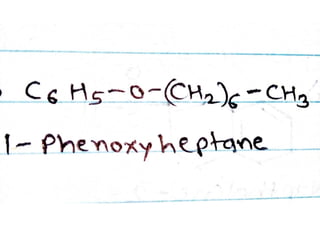 C6H5-O-(CH2)6-CH3
1-Phenoxyheptane